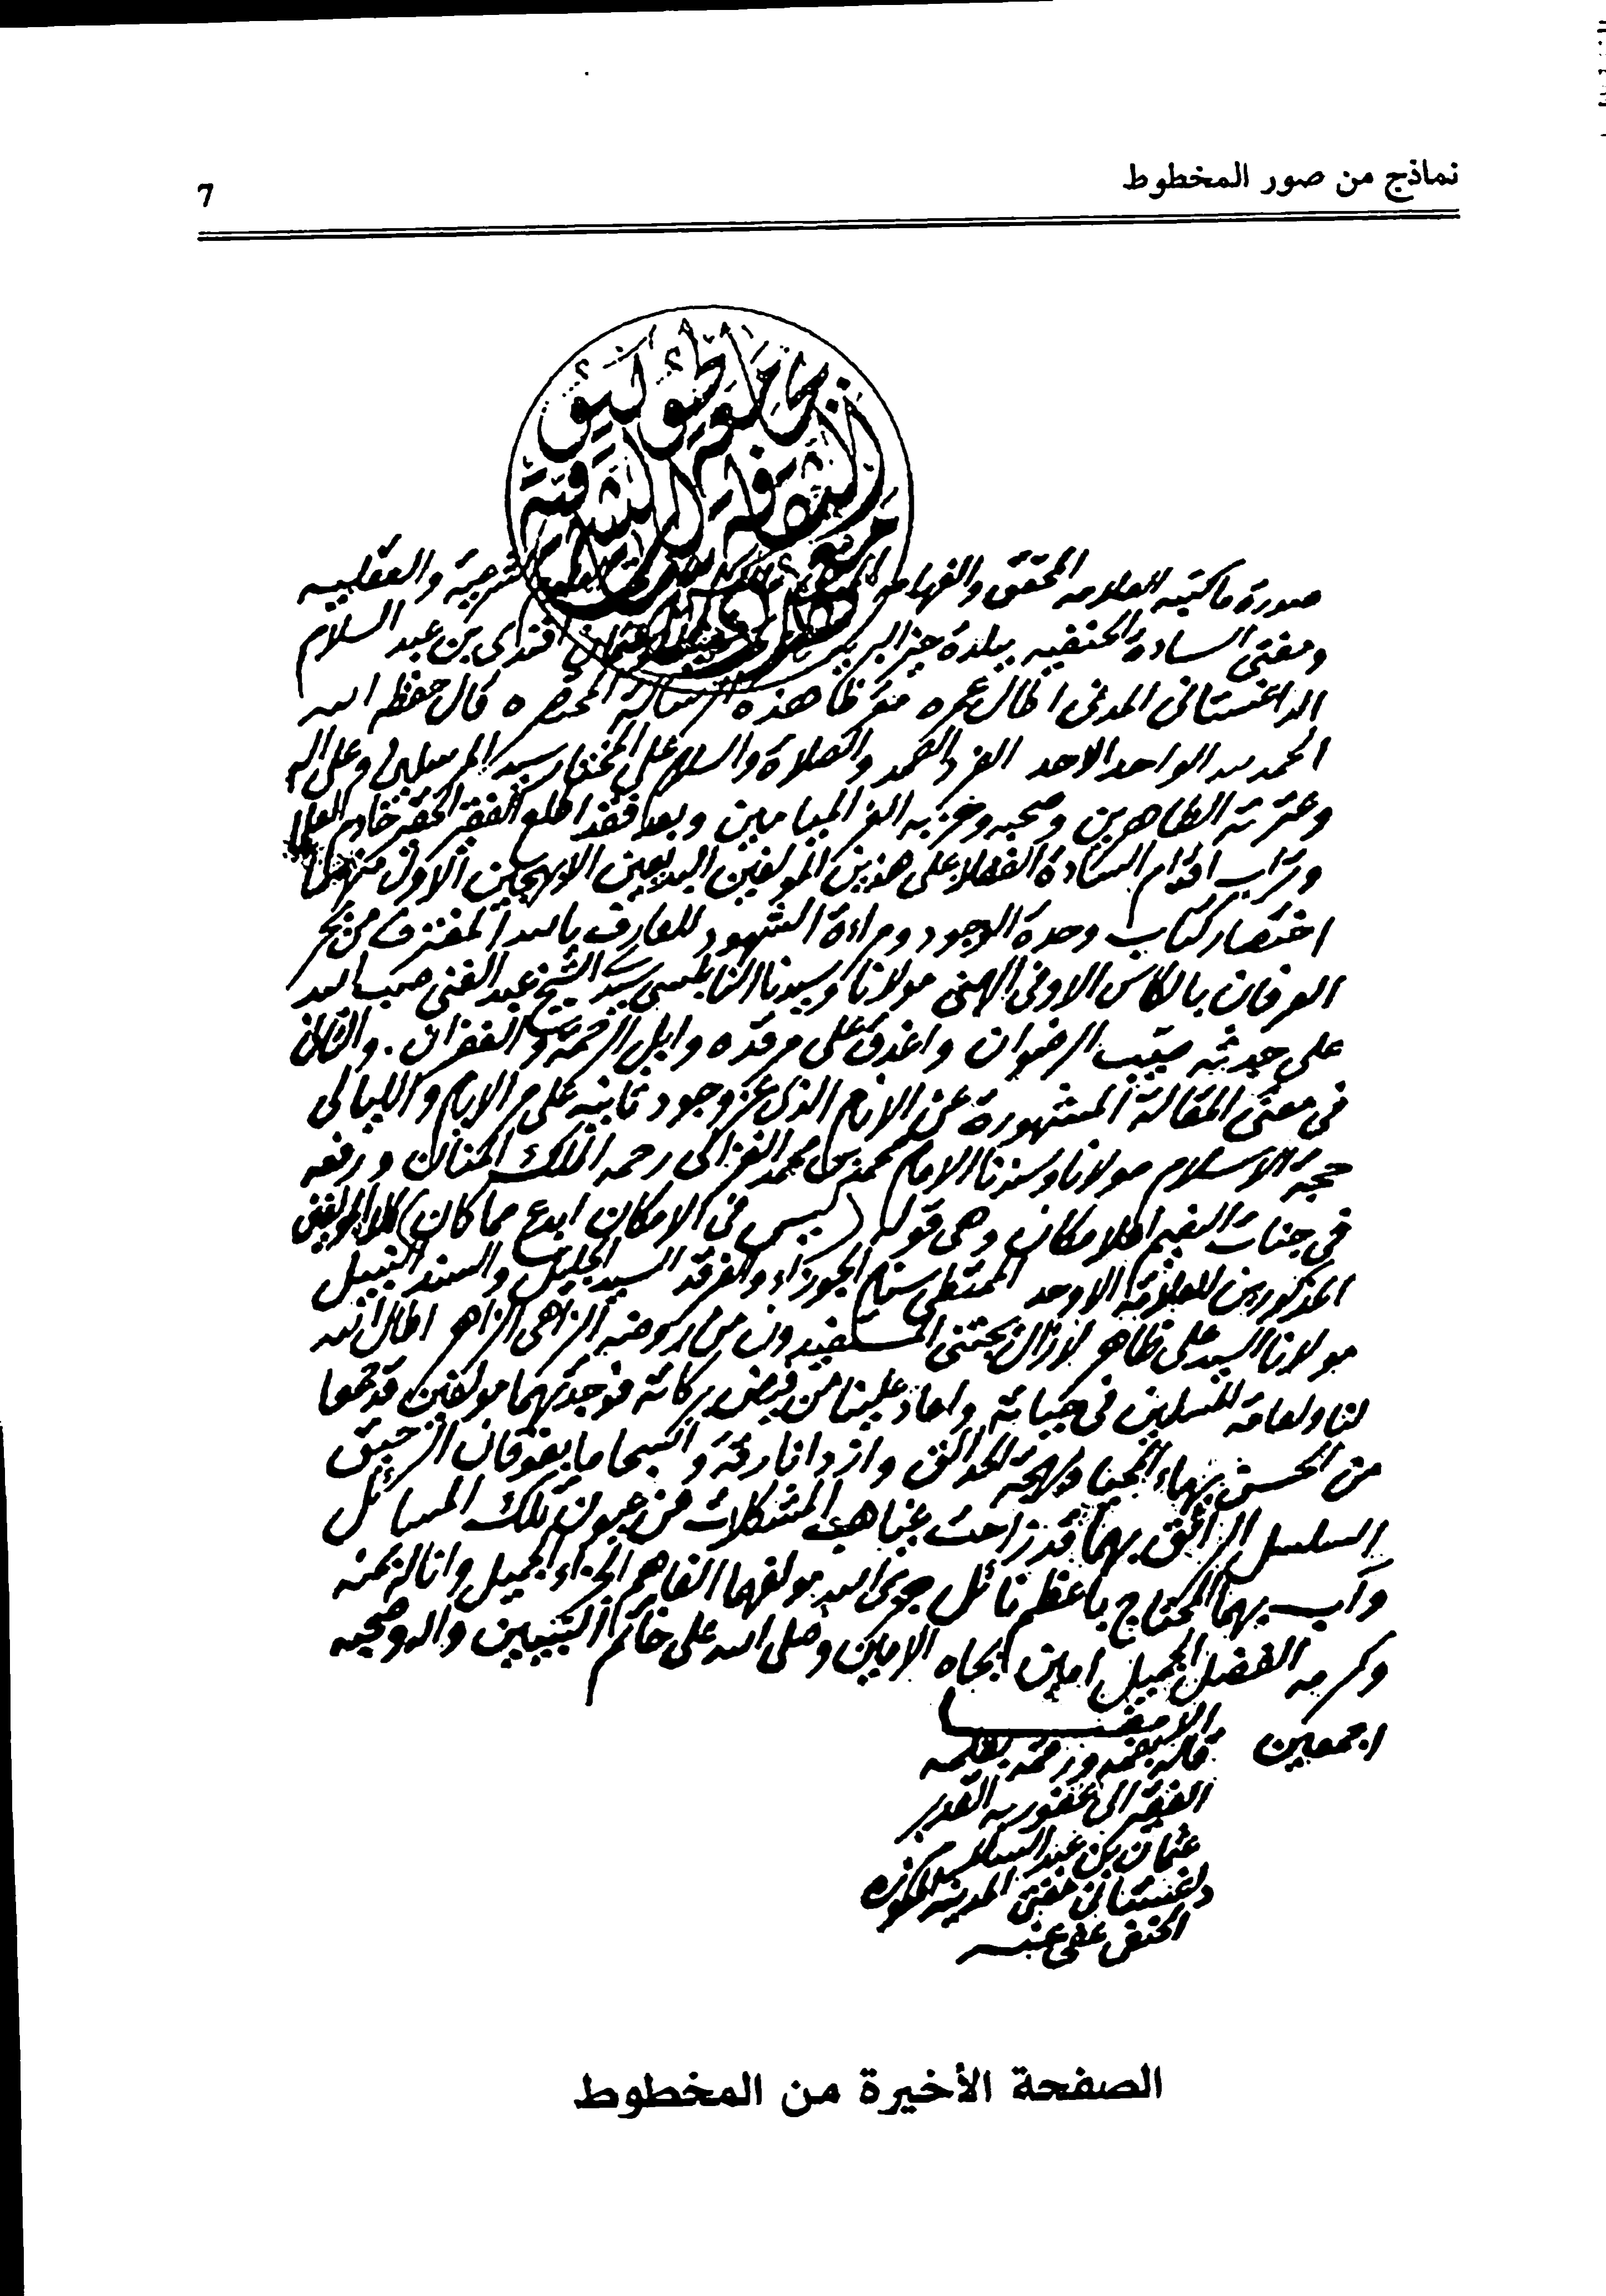 نماذج من صور المخطوط
7
صورة ما كتبه العلامه المحقق والفهامه الشرعية والعقليه
ومفتى السادة الحنفيه ببلدة خير البريه افندى بن عبد السلام
الداغستانى المدنى اطال عمره مؤ ظا هذه الرسالة المختصره قال حفظه الله
الحمد لله الواحد الاحد الفرد الصمد والصلاة والسلام على المختار سيد المرسلين وعلى اله
وعترته الطاهرين وصحبه وحزبه الغر الميامين وبعد فقد اطلع الفقير الحقير خادم العلما
وتراب اقدام السادة الفضلا على هذين المولفين البديعين الابهجين الاول منهما
اختصار كتاب وحدة الوجود ومراءة الشهود للعارف بالله المغترف من بحر
العرفان بالكاس الاوفى الاهنى مولانا وسيدنا النابلسى سيدى الشيخ عبد الغنى صب الله
على جدثه صيب الرضوان واغدق على مرقده وابل الرحمة والغفران. والثانى
فى معنى المقالة المشهورة عن الامام الذى عز وجود ثانيه على مر الايام والليالى
حجة الاسلام مولانا وسندنا الامام محمد بن محمد الغزالى رحمه الملك المنان ورفعه
فى جنات النعيم اعلا مكان وهى قوله (ليس فى الامكان ابدع مما كان) كلا المولفين
المذكورين للعلامة الاوحد الممتطى سنام الجوزاء والفرقد السيد الجليل والسند النبيل
مولانا السيد على ظاهر لازال يجتنى المستفيدون من روضه الزاهى الزاهر اطال الله
لنا ولعامة المسلمين فى حياته واعاد علينا من فيض بركاته فوجدتهما مولفين قد جمعا
من الحسن بهاء المحيا وبهجة الحدائق وازدانا رقة وانسجاما يفوقان الرحيق
السلسل الرائق بهما قد زاحت غياهب المشكلات عن عيون تلك المسائل
وآب بهما المحتاج باعظم نائل جوزى الله مولفهما الفاهم الجزاء الجميل واناله بمنه
وكرمه الفضل الجميل امين بجاه الامين وصلى الله على خاتم النبيين واله وصحبه
اجمعين
قاله بفمه ورقمه بقلمه
الفقير الى عفو ربه القدير
عثمان بن عبد السلام
داغستانى مفتى المدينه المنوره
الحنفى عفى عنه
الصفحة الأخيرة من المخطوط